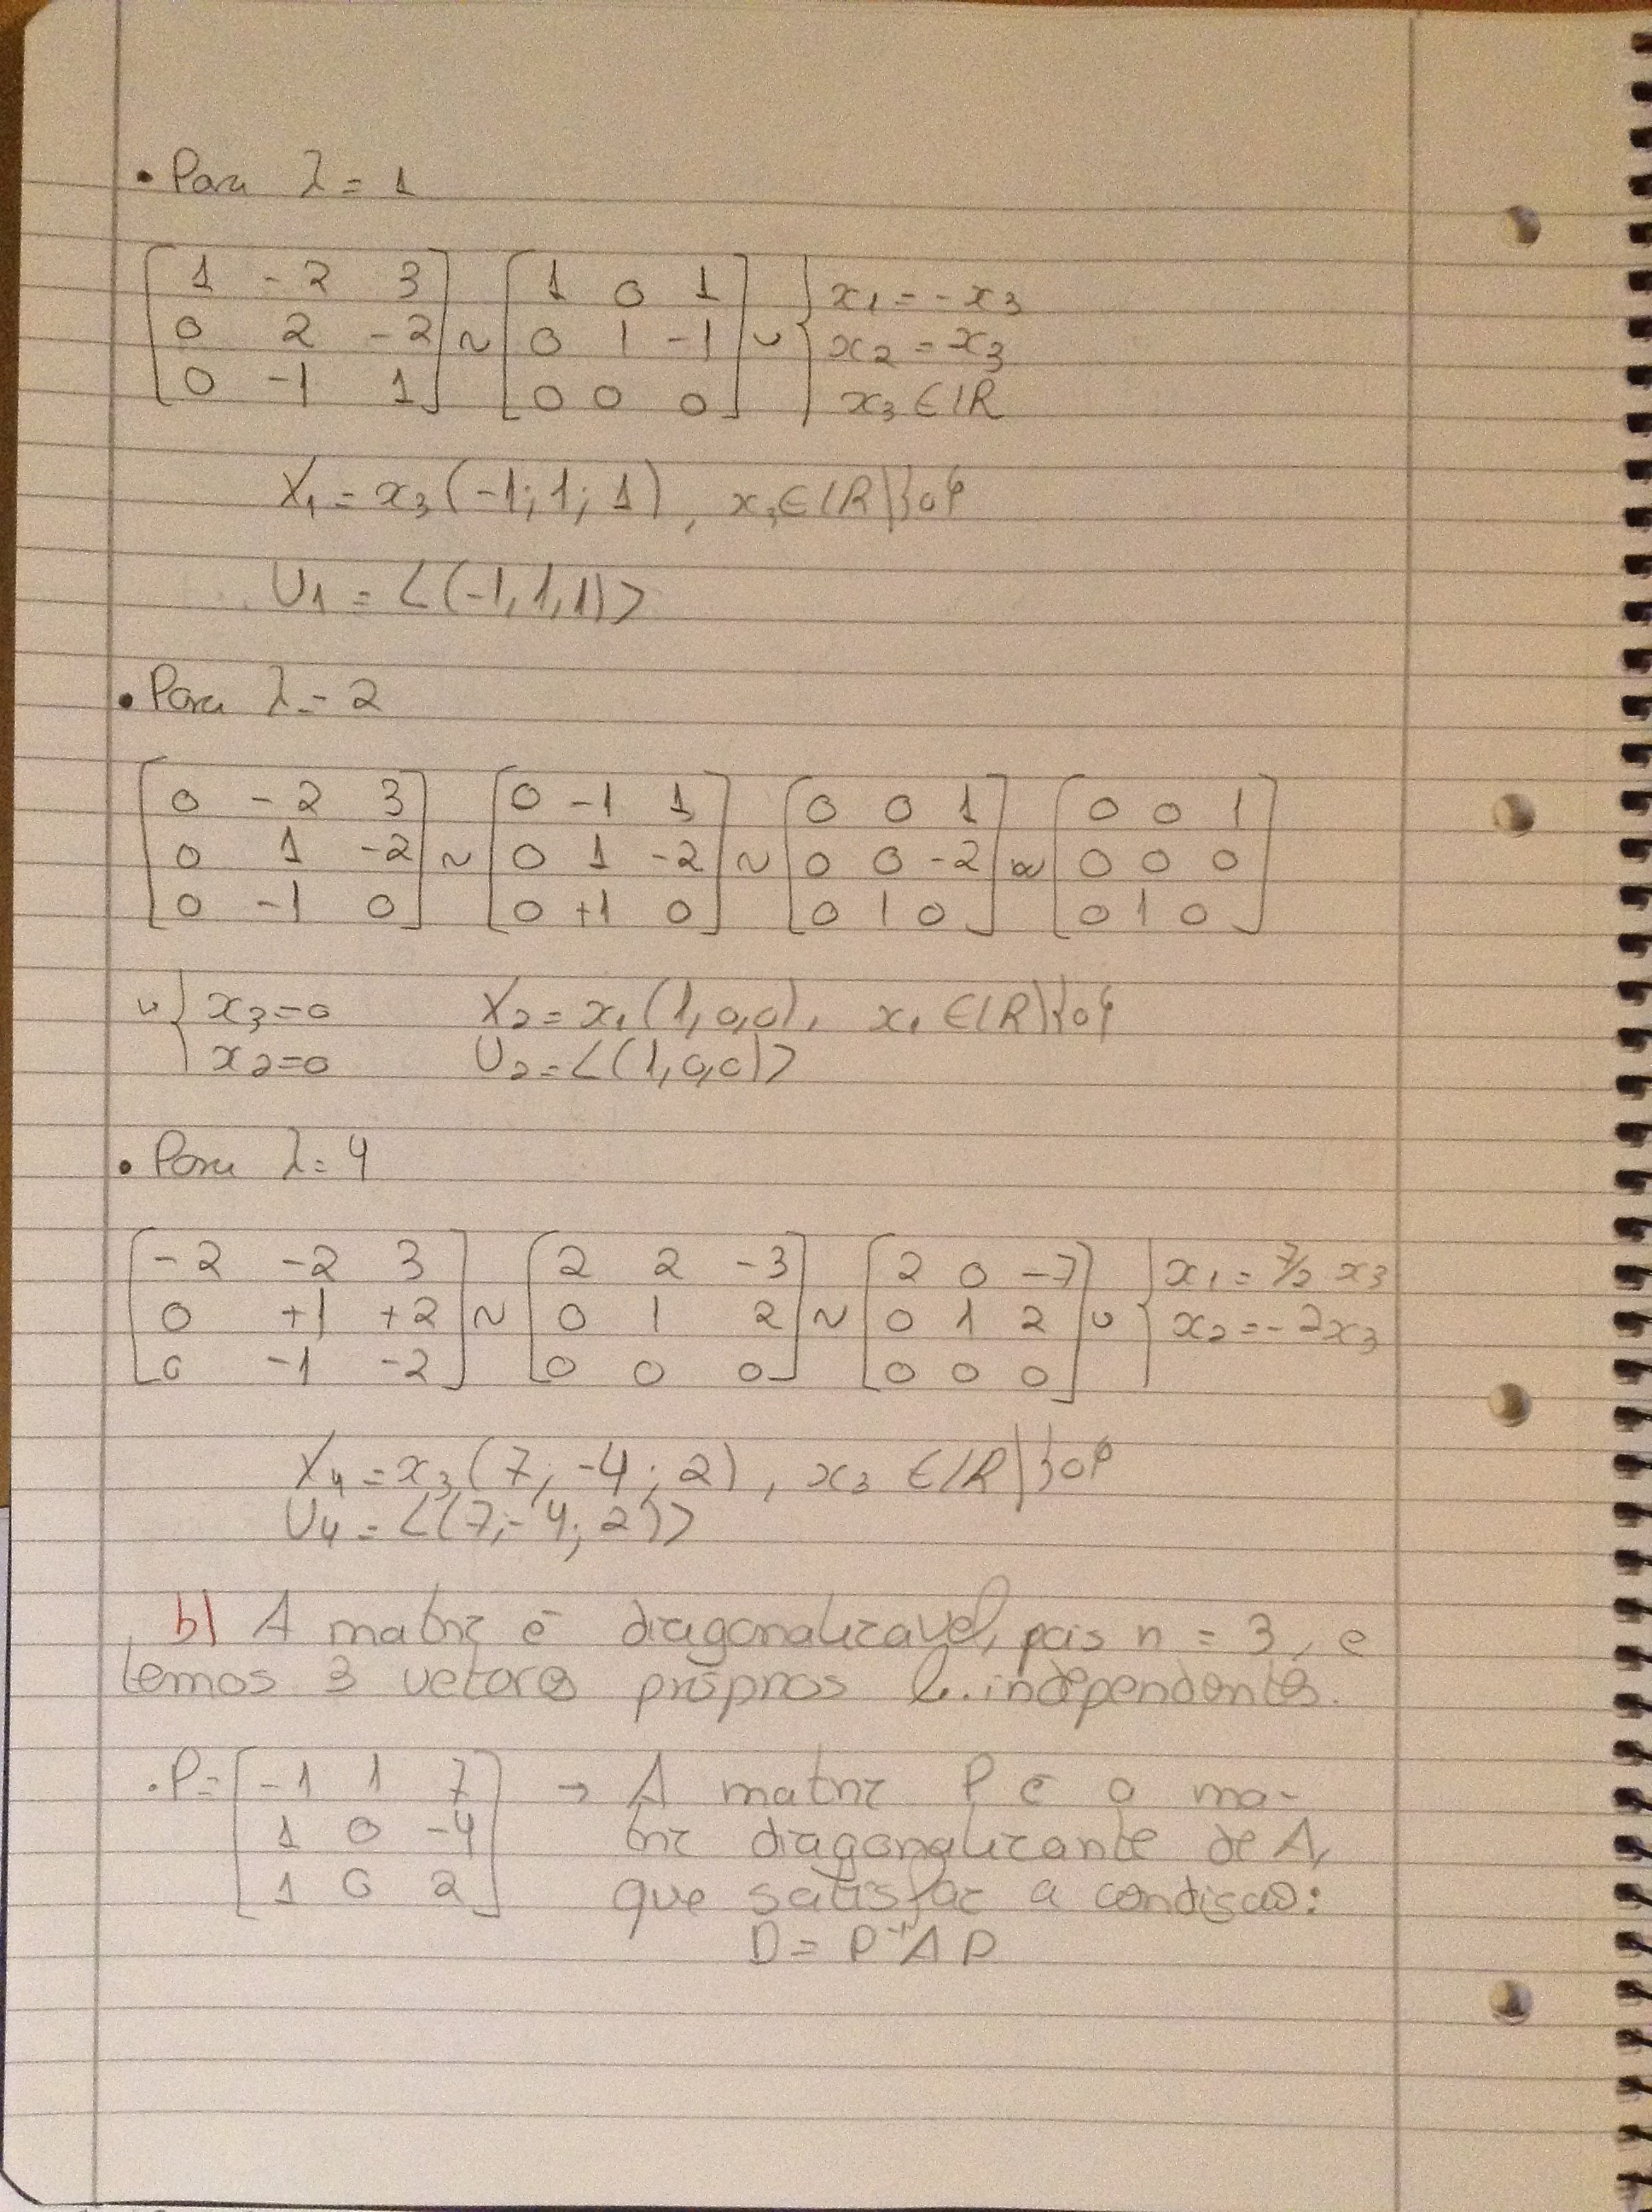 • Para λ = 1
[1 -2 3; 0 2 -2; 0 -1 1] ~ [1 0 1; 0 1 -1; 0 0 0] ~ { x₁ = -x₃; x₂ = x₃; x₃ ∈ ℝ
X₁ = x₃ (-1; 1; 1), x₃ ∈ ℝ\{0}
U₁ = <(-1, 1, 1)>
• Para λ = 2
[0 -2 3; 0 1 -2; 0 -1 0] ~ [0 -1 1; 0 1 -2; 0 +1 0] ~ [0 0 1; 0 0 -2; 0 1 0] ~ [0 0 1; 0 0 0; 0 1 0]
~ { x₃ = 0; x₂ = 0 X₂ = x₁ (1, 0, 0), x₁ ∈ ℝ\{0}
U₂ = <(1, 0, 0)>
• Para λ = 4
[-2 -2 3; 0 +1 +2; 0 -1 -2] ~ [2 2 -3; 0 1 2; 0 0 0] ~ [2 0 -7; 0 1 2; 0 0 0] ~ { x₁ = 7/2 x₃; x₂ = -2x₃
X₄ = x₃ (7; -4; 2), x₃ ∈ ℝ\{0}
U₄ = <(7; -4; 2)>
b) A matriz é diagonalizavel, pois n = 3, e
temos 3 vetores próprios l. independentes.
• P = [-1 1 7; 1 0 -4; 1 0 2] → A matriz P é a ma-
triz diagonalizante de A,
que satisfaz a condição:
D = P⁻¹ A P